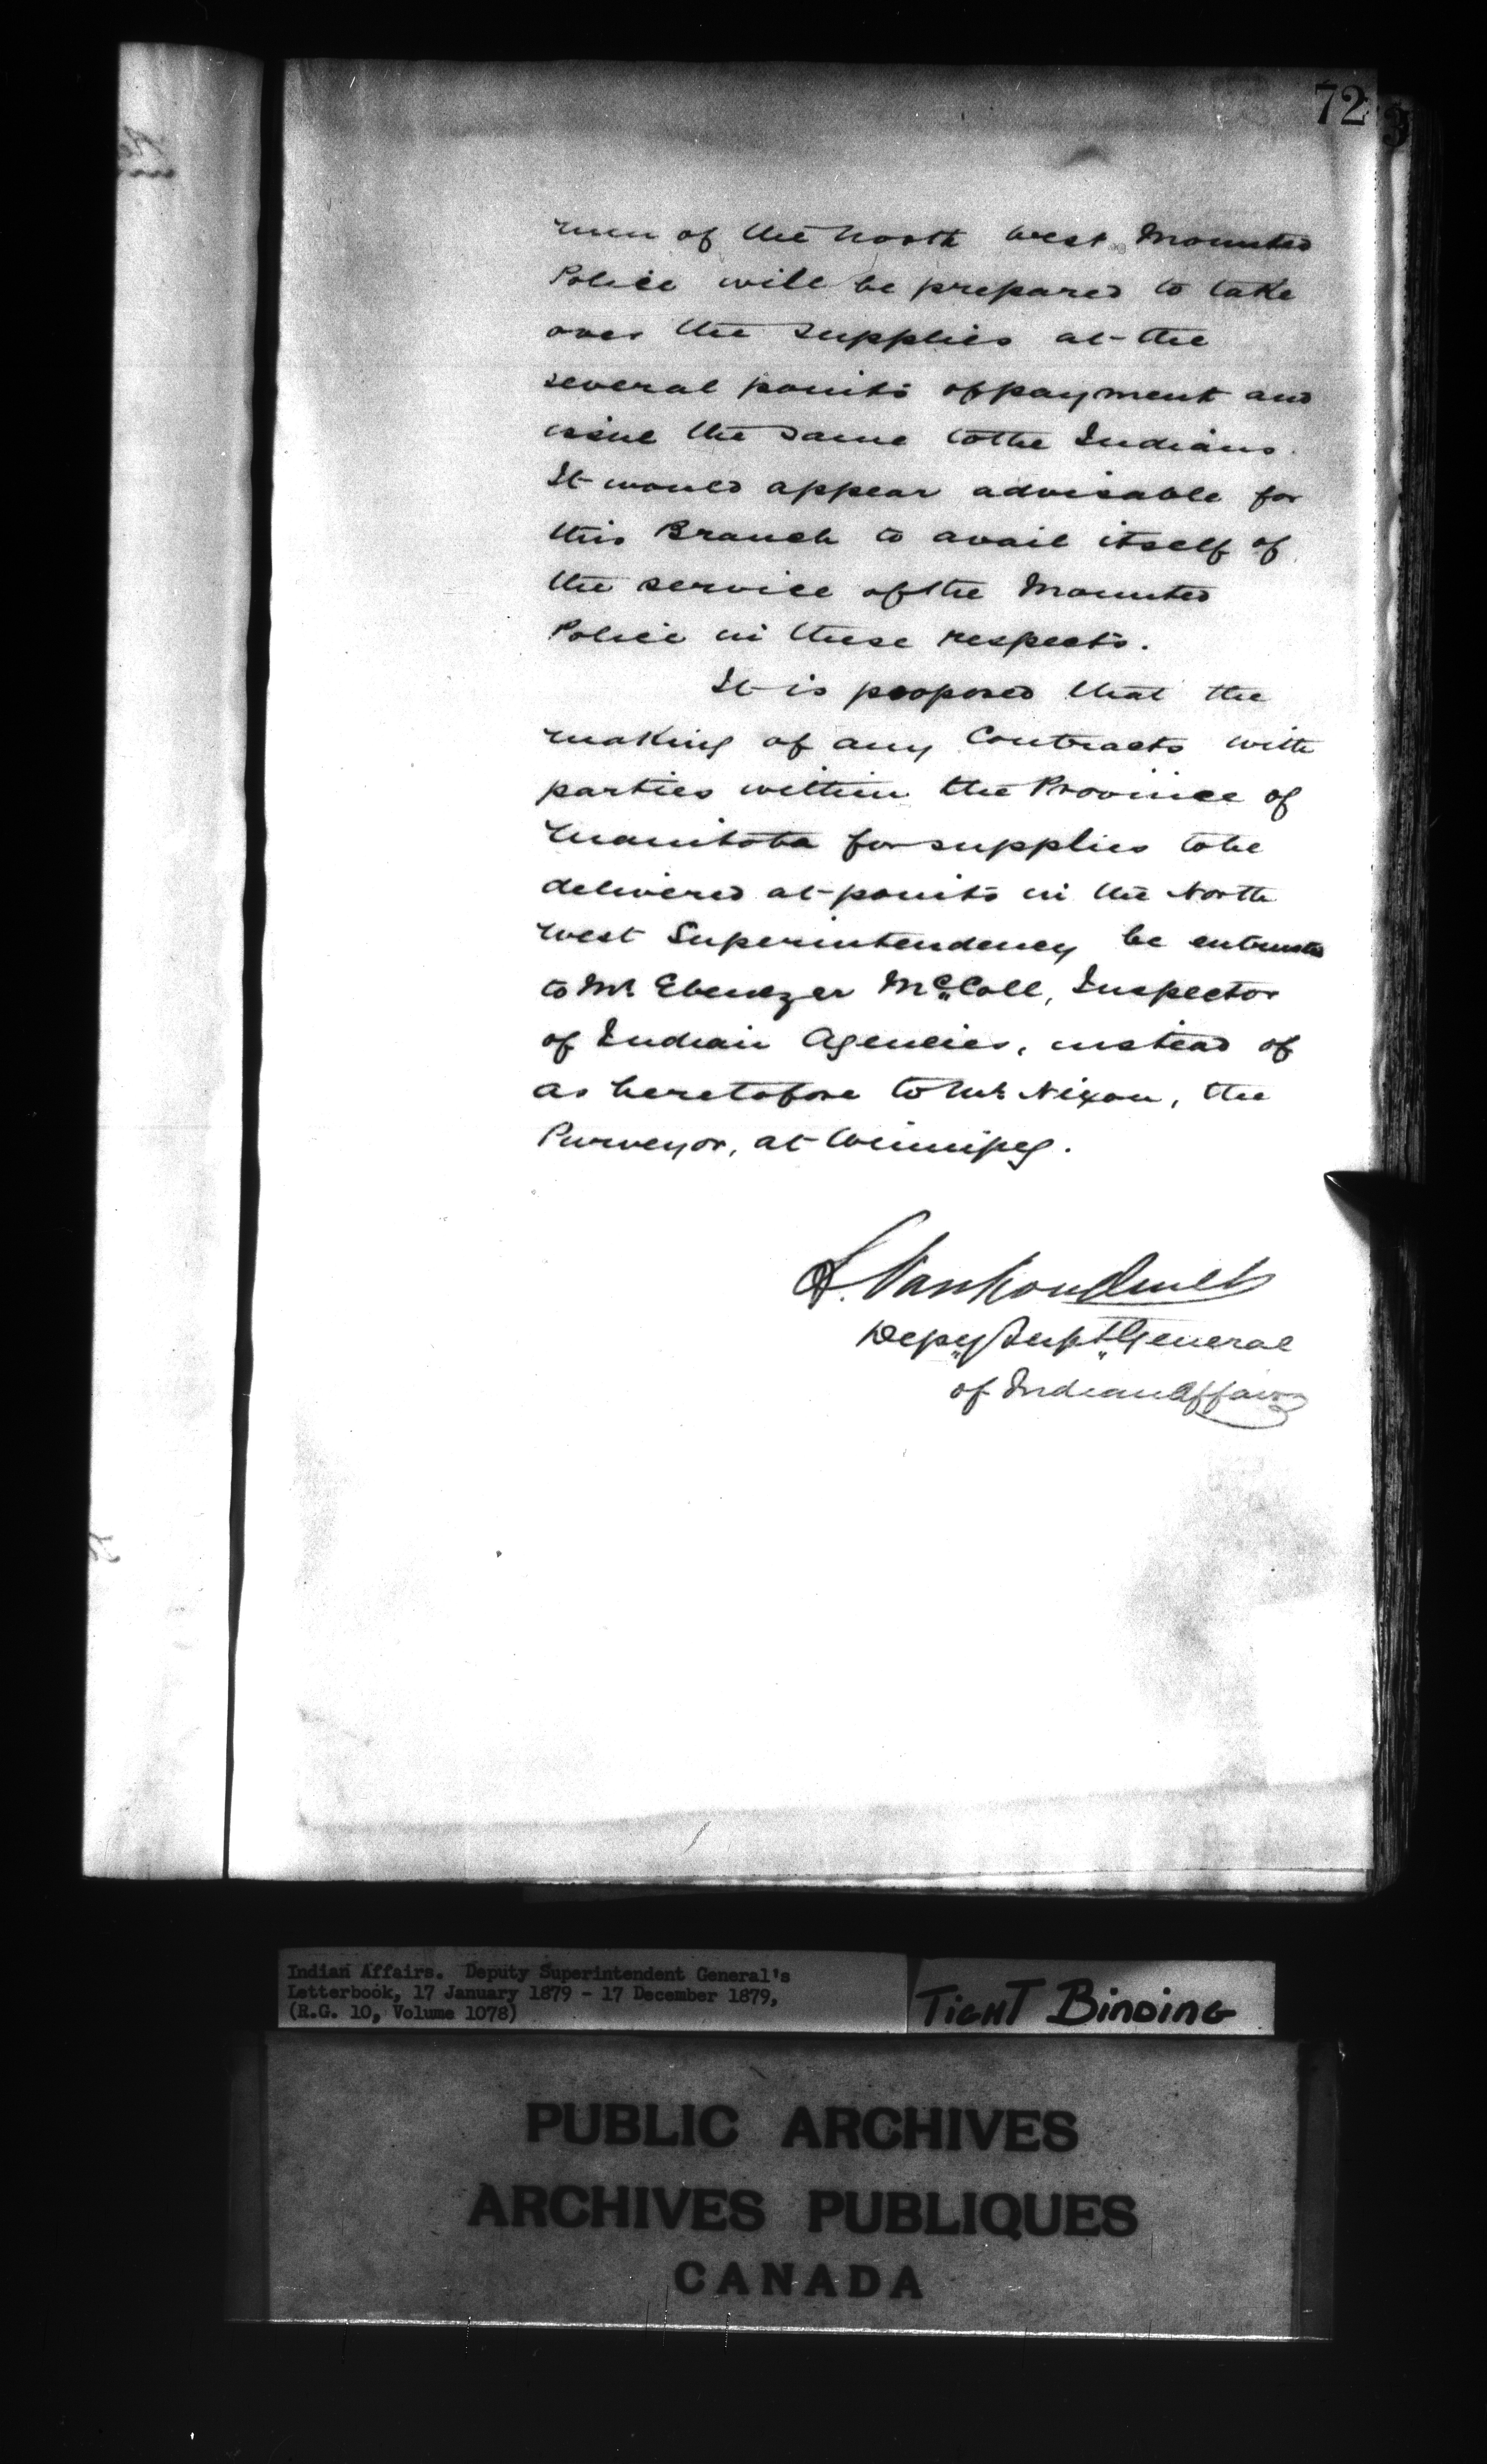 72
3
men of the North West Mounted
Police will be prepared to take
over the supplies at the
several points of payment and
issue the same to the Indians.
It would appear advisable for
this Branch to avail itself of
the service of the Mounted
Police in these respects.
It is proposed that the
making of any Contracts with
parties within the Province of
Manitoba for supplies to be
delivered at points in the North
West Superintendency be entrusted
to Mr. Ebenezer McColl, Inspector
of Indian Agencies, instead of
as heretofore to Mr. Nixon, the
Purveyor, at Winnipeg.
L. Vankoughnet
Depy Supt General
of Indian Affairs
Indian Affairs. Deputy Superintendent General's
Letterbook, 17 January 1879 - 17 December 1879,
(R.G. 10, Volume 1078)
TIGHT BINDING
PUBLIC ARCHIVES
ARCHIVES PUBLIQUES
CANADA